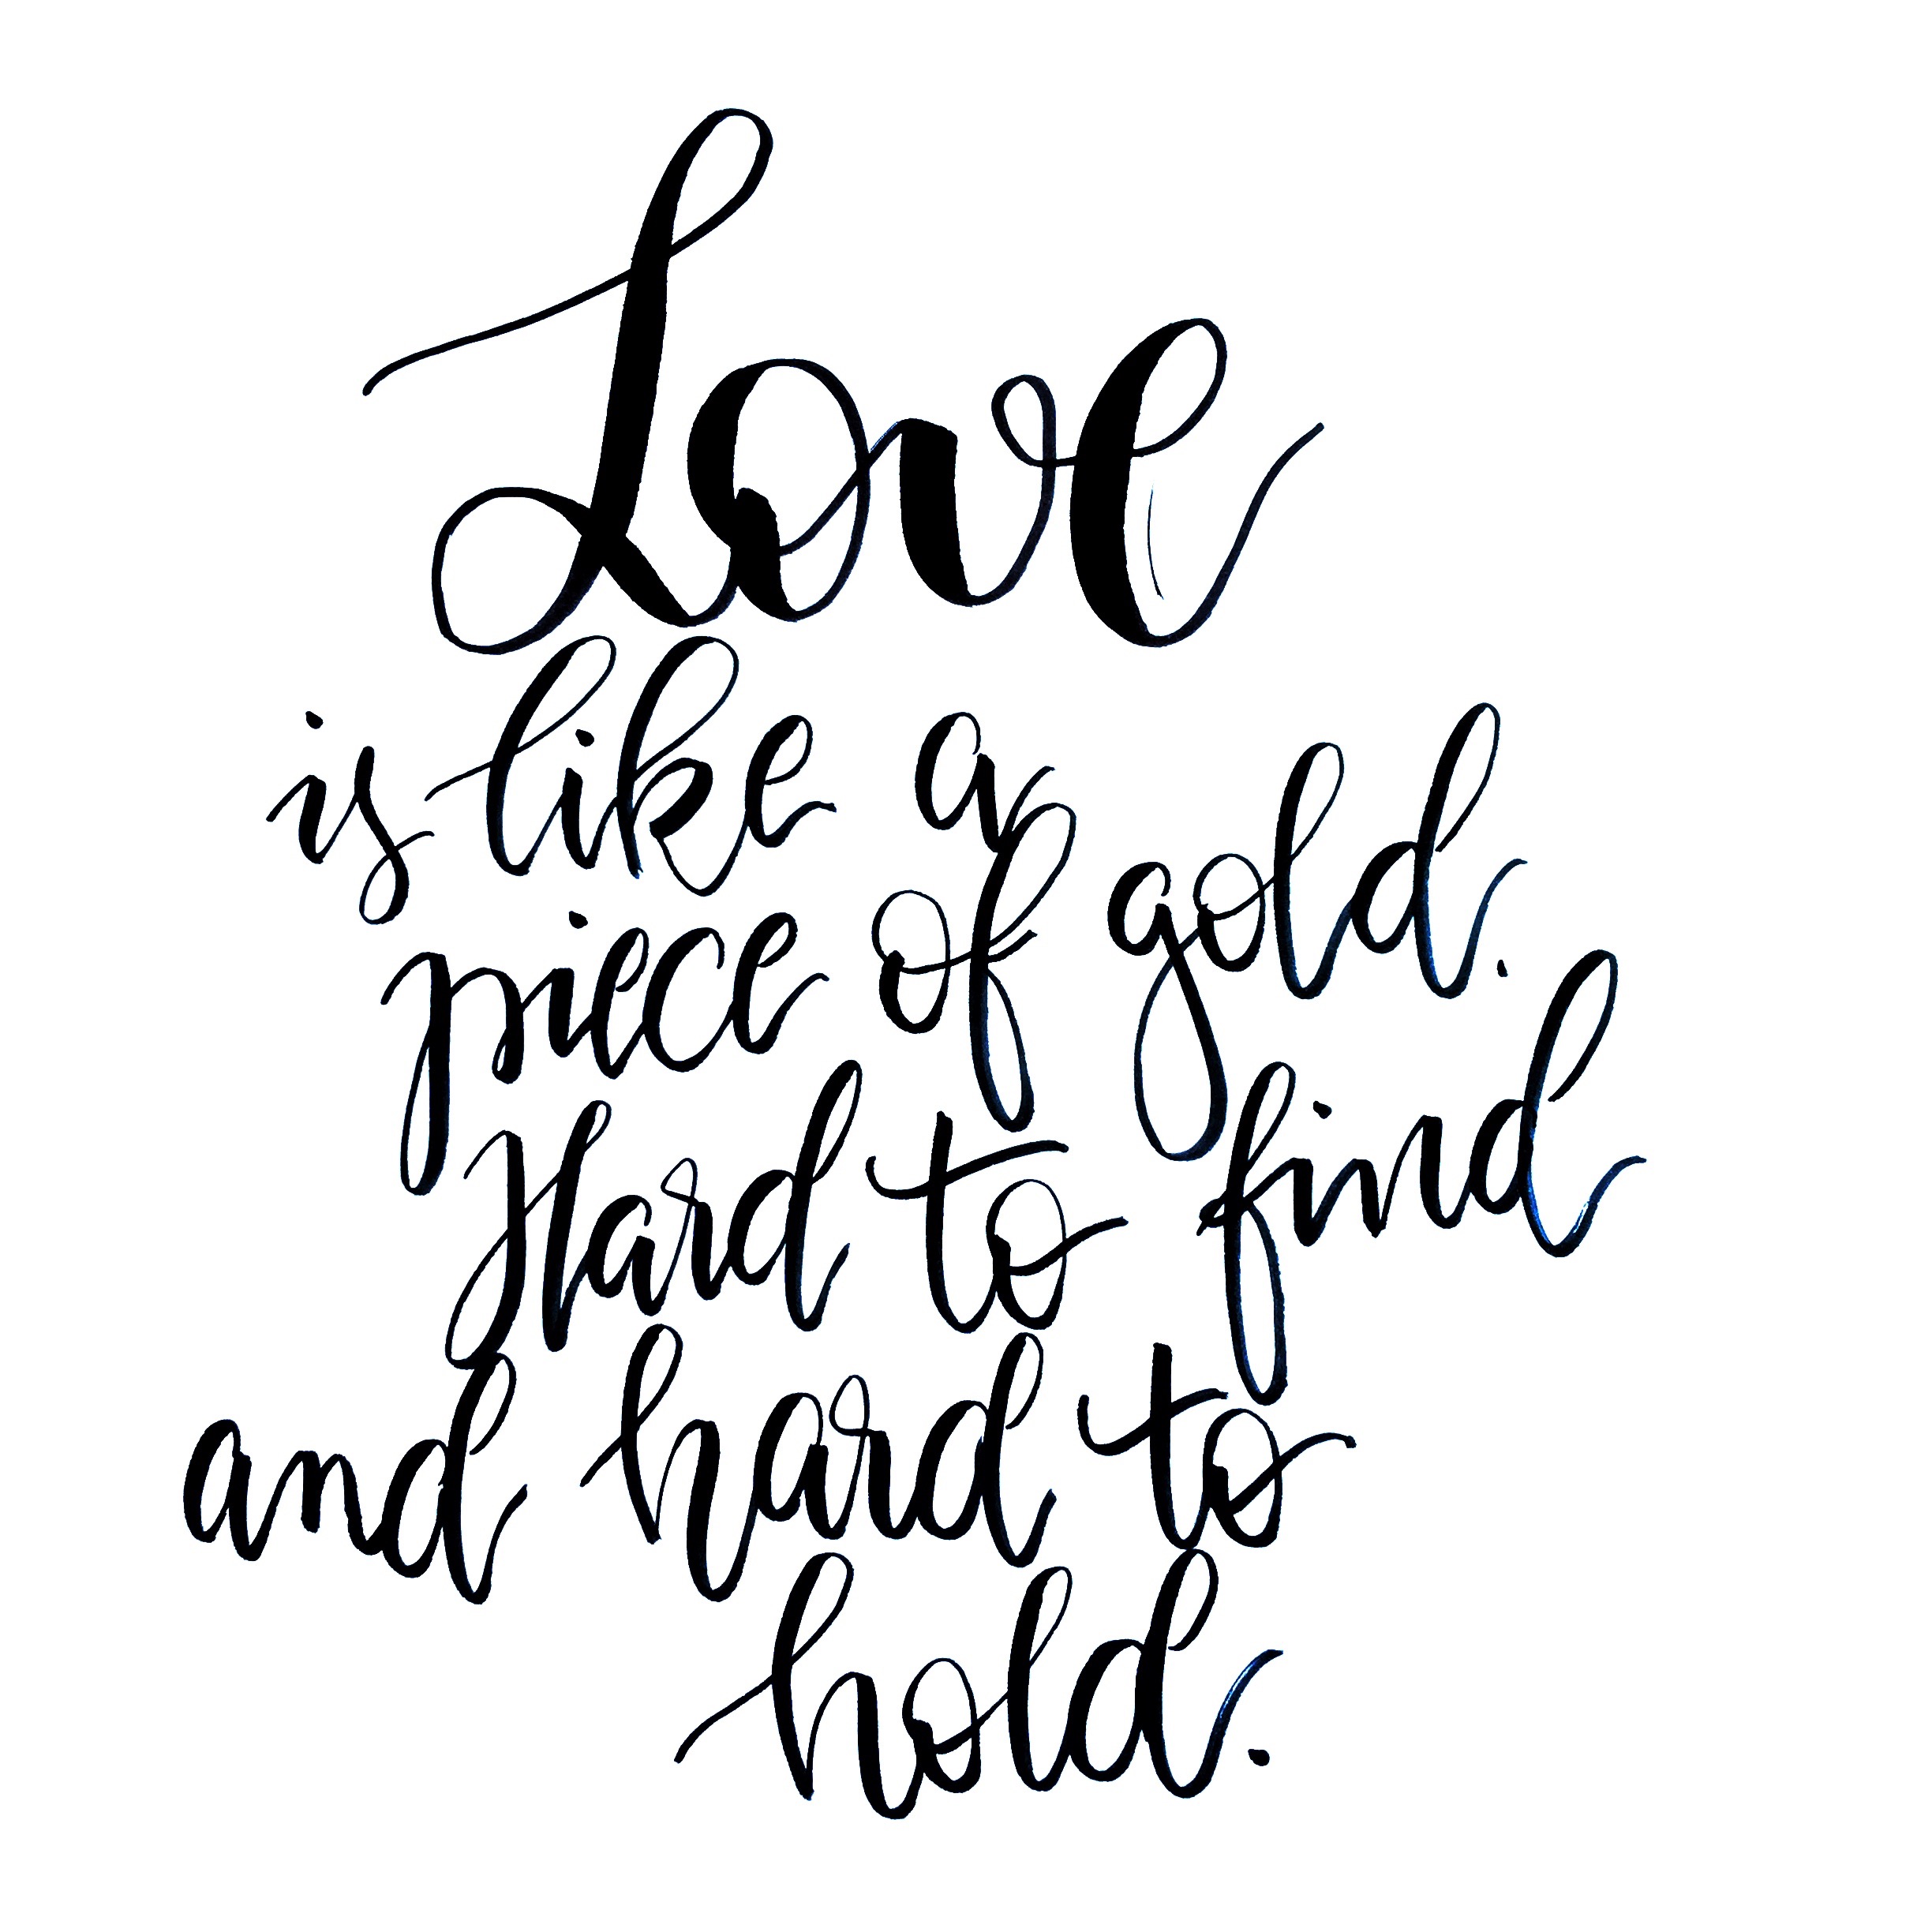 Love
is like a
piece of gold.
Hard to find
and hard to
hold.